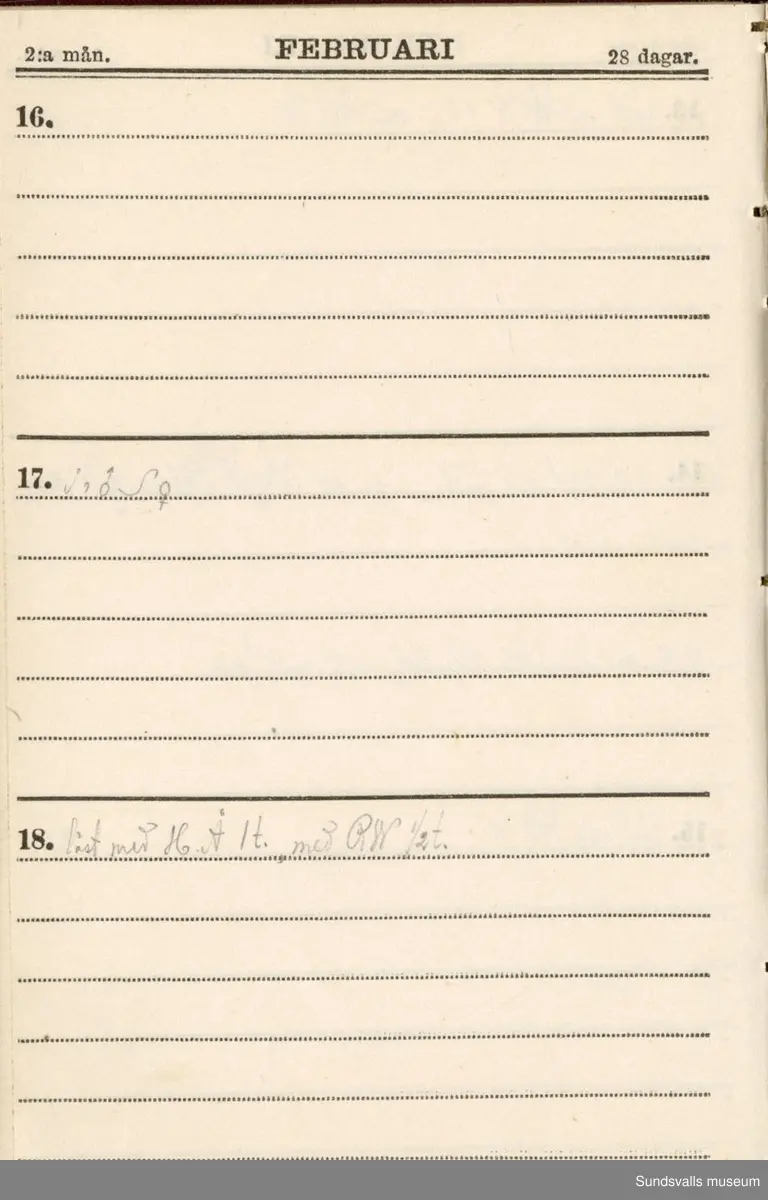 2:a mån. FEBRUARI 28 dagar.
16.
17.
18. läst med H.Å 1t. med RW 1/2t.
Sundsvalls museum